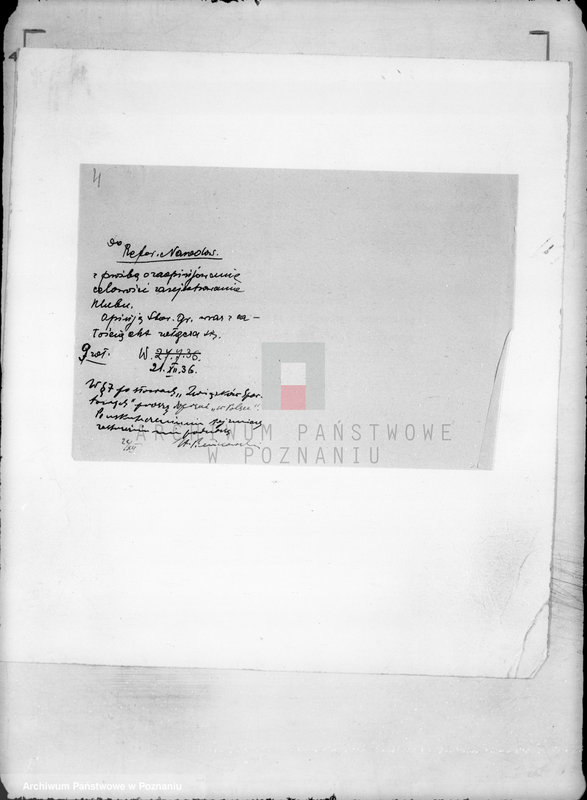 4
Do
Refer. Narodow.
z prośbą o zaopinjowanie
celowości zarejestrowania
Klubu.
Opinją Star. Gr. wraz z ca-
łością akt załącza się.
W. 24.7.36.
21.XII.36.
W § 7 po słowach „Związków Spor-
towych" proszę dopisać „w Polsce".
Po uskutecznieniu tej zmiany
ARCHIWUM PAŃSTWOWE
W POZNANIU
Archiwum Państwowe w Poznaniu